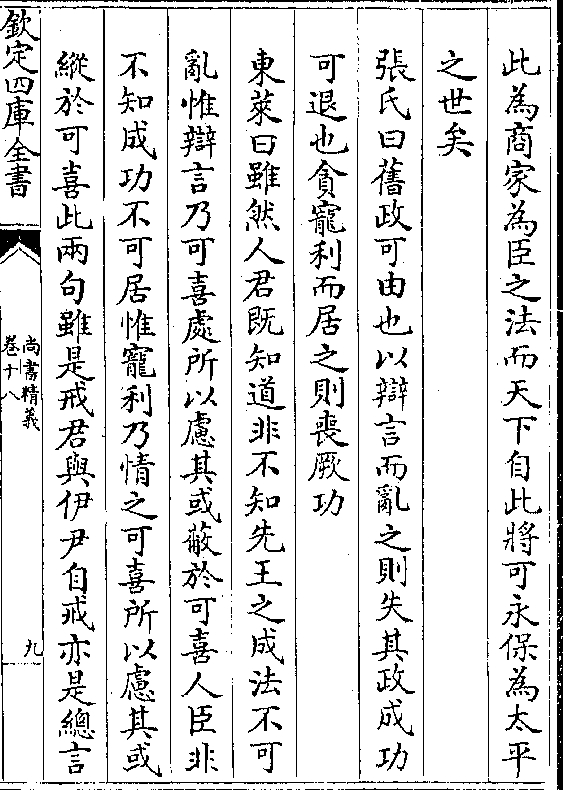 此為商家為臣之法而天下自此將可永保為太平
之世矣
張氏曰舊政可由也以辯言而亂之則失其政成功
可退也貪寵利而居之則喪厥功
東萊曰雖然人君既知道非不知先王之成法不可
亂惟辯言乃可喜處所以慮其或蔽於可喜人臣非
不知成功不可居惟寵利乃情之可喜所以慮其或
縱於可喜此兩句雖是戒君與伊尹自戒亦是總言
欽定四庫全書
尚書精義
卷十八
九